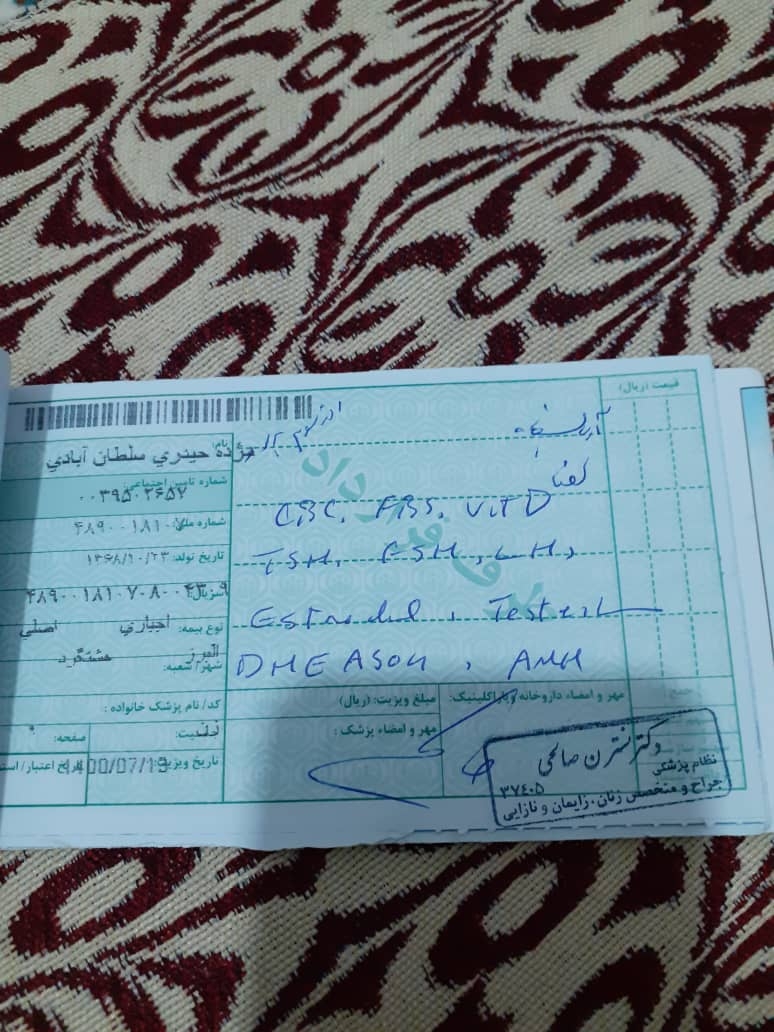 قیمت (ریال)
آزمایشگاه
لطفا
CBC, FBS, VitD
TSH, FSH, LH,
Estradiol, Test
DHEASO4, AMH
نام:
مژده حیدری سلطان آبادی
شماره تامین اجتماعی:
۰۰۳۹۵۰۲۶۵۷
شماره ملی:
تاریخ تولد: ۱۳۶۸/۱۰/۲۳
سریال:
نوع بیمه: اجباری اصلی
شهر/شعبه: البرز هشتگرد
کد/ نام پزشک خانواده :
جنسیت: زن
صفحه:
تاریخ ویزیت:
1400/07/19
تاریخ اعتبار/
جمع
مهر و امضاء داروخانه و یا پاراکلینیک:
مبلغ ویزیت: (ریال)
مهر و امضاء پزشک :
دکتر نسترن صالحی
نظام پزشکی
۳۷۴۰۵
جراح و متخصص زنان، زایمان و نازایی